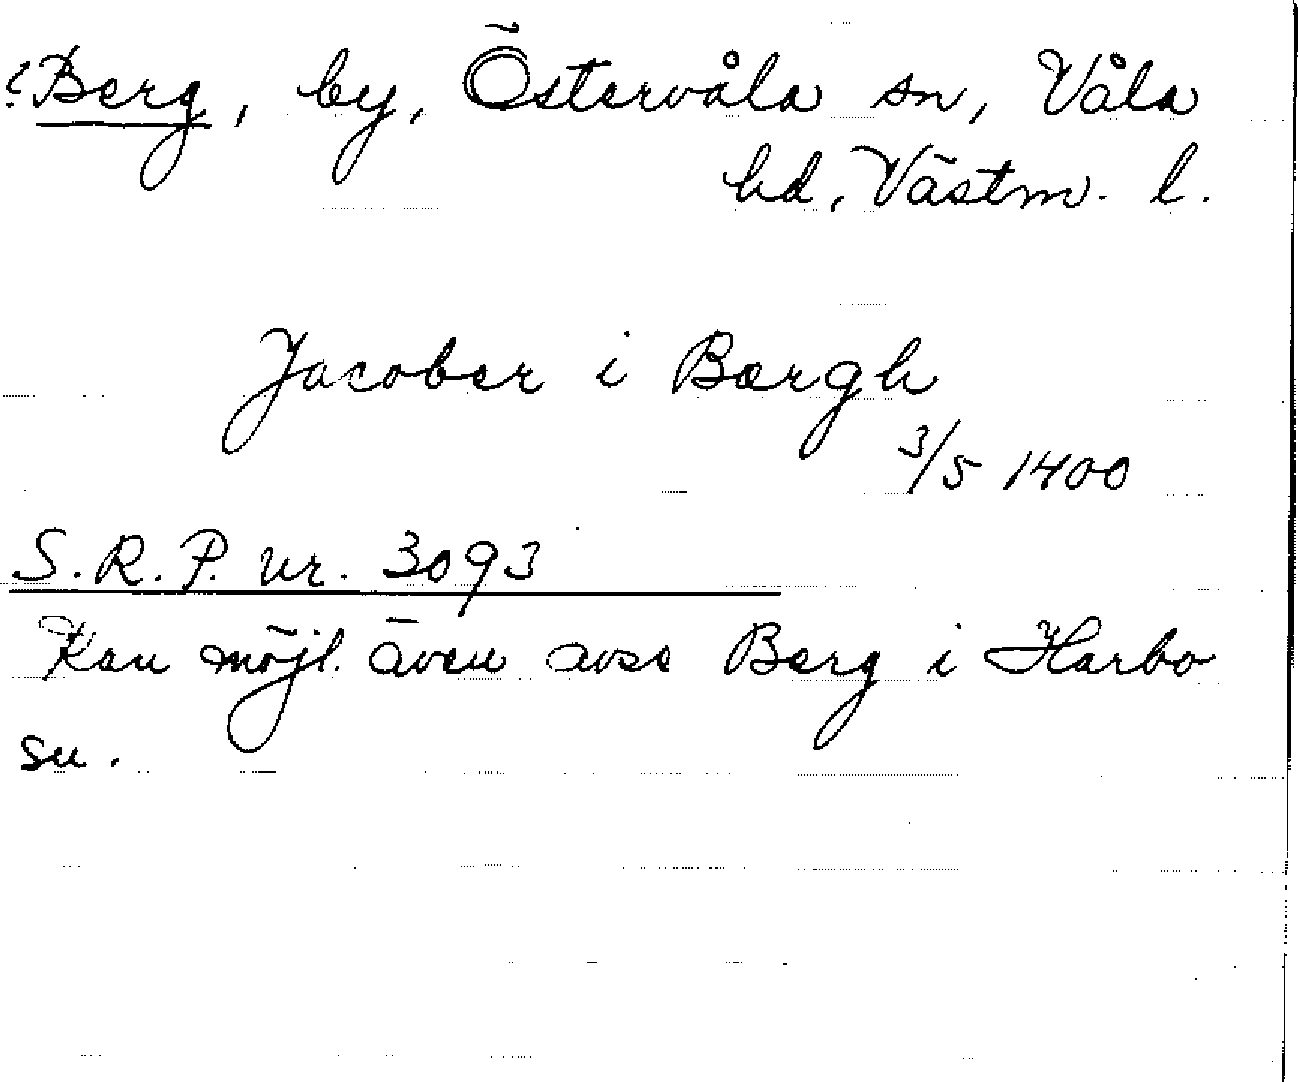 ?Berg, by, Östervåla sn, Våla
hd, Västm. l.
Jacober i Bærgh
3/5 1400
S.R.P. nr. 3093
Kan möjl. även avse Berg i Harbo
sn.